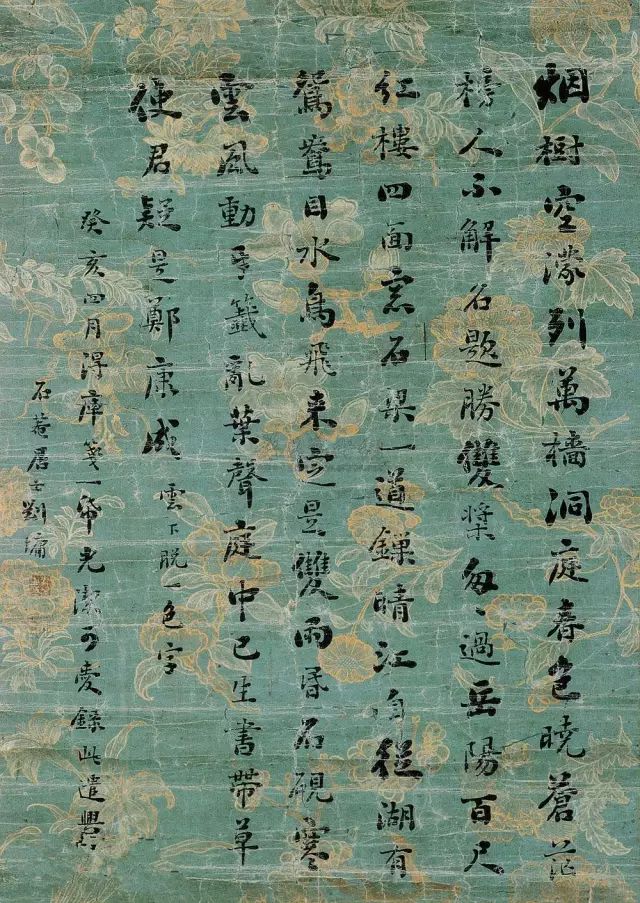 烟樹空濛列萬檣洞庭春色曉蒼茫
榜人不解名題勝雙槳匆々過岳陽百尺
紅樓四面窓石梁一道鏁晴江自從湖有
鴛鴦目水鳥飛来定是雙雨昏石硯寒
雲風動牙籤亂葉聲庭中已生書帶草
使君疑是鄭康成雲下脱一色字
癸亥四月得庫箋一帋光潔可愛錄此遣興
石菴居士劉墉